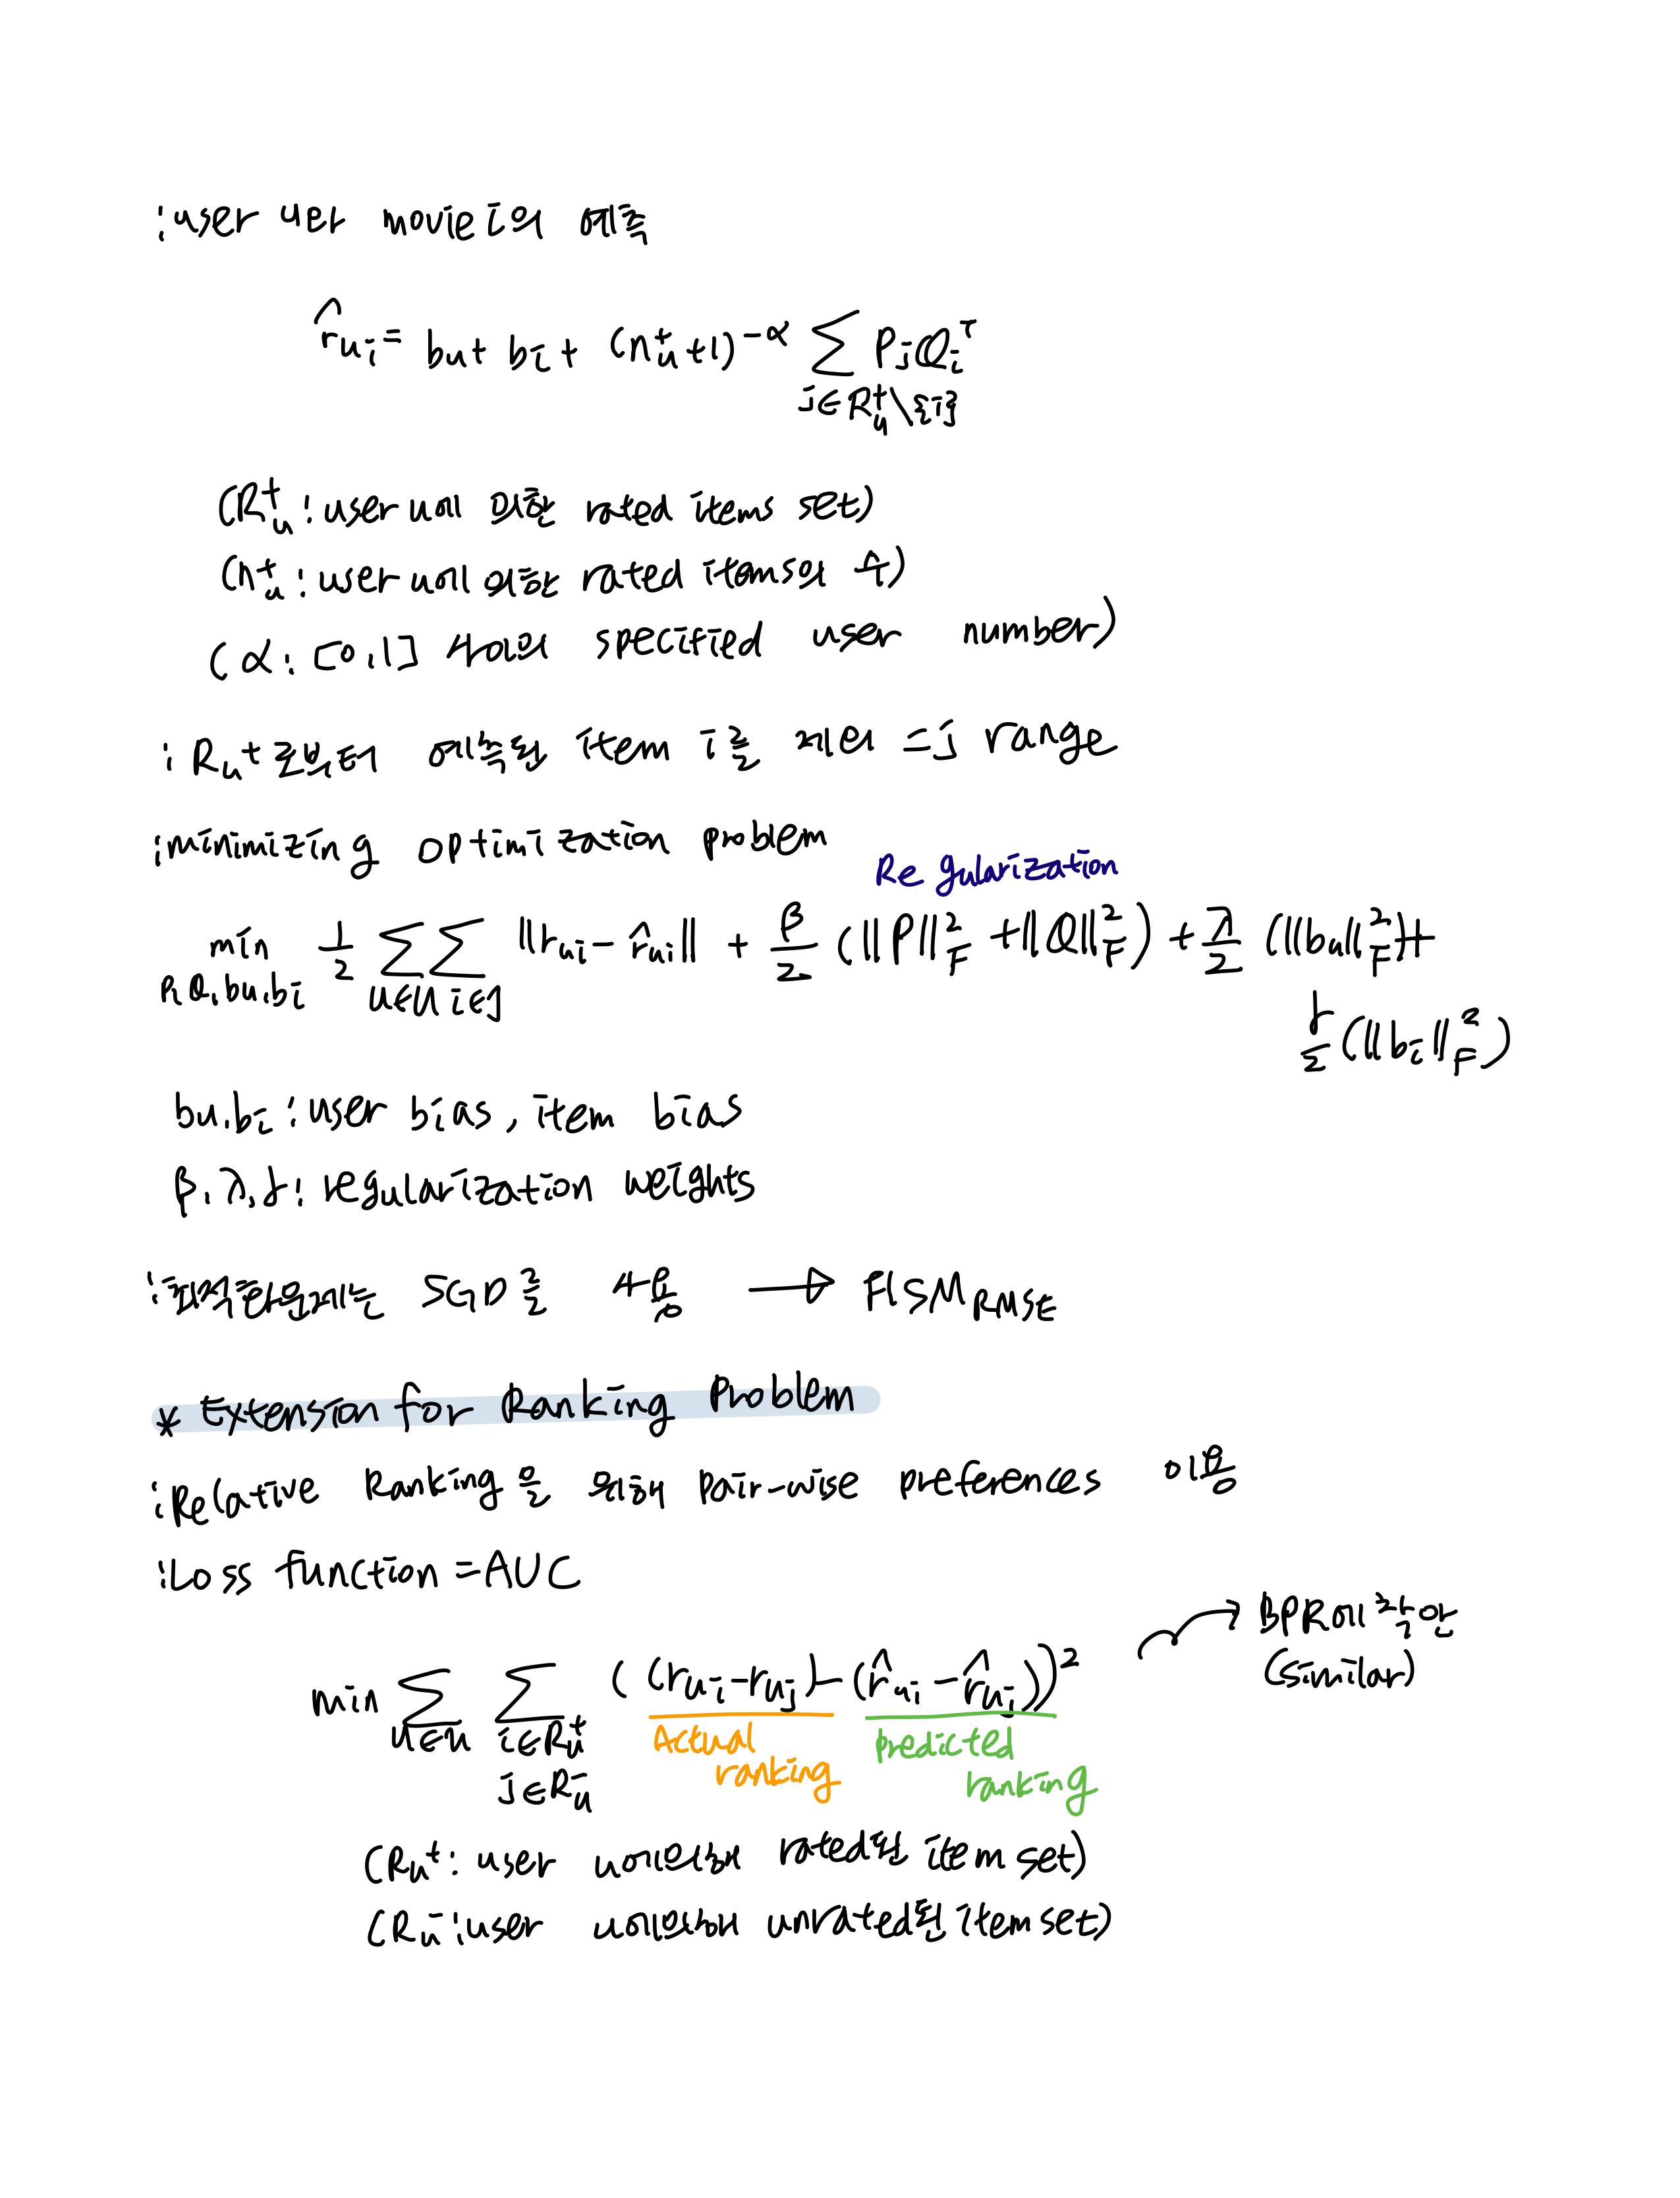 : user u와 movie i의 예측
r̂ui = bu + bi + (nu⁺+1)^-α Σ j∈Ru⁺\{i} PjQiᵀ
(Ru⁺ : user u에 의한 rated items set)
(nu⁺ : user u에 의한 rated items의 수)
(α : [0,1] 사이의 specified user number)
: Ru⁺로부터 예측된 item i를 제외 = j range
: minimizing optimization problem
Regularization
min P,Q,bu,bi 1/2 Σ u∈U Σ i∈J ||rui - r̂ui|| + β/2 (||P||²F + ||Q||²F) + λ/2 (||bu||²F) +
γ/2 (||bi||²F)
bu, bi : user bias, item bias
β, λ, γ : regularization weights
: 최적화문제는 SGD를 사용 → FISM RMSE
* Extension for Ranking Problem
: Relative Ranking을 위해 pair-wise preferences 이용
: Loss function = AUC
→ BPR에 착안
(similar)
min Σ u∈u Σ i∈Ru⁺ j∈Ru⁻ ((rui - ruj) - (r̂ui - r̂uj))²
Actual ranking
predicted ranking
(Ru⁺ : user u에의해 rated된 item set)
(Ru⁻ : user u에의해 unrated된 item set)